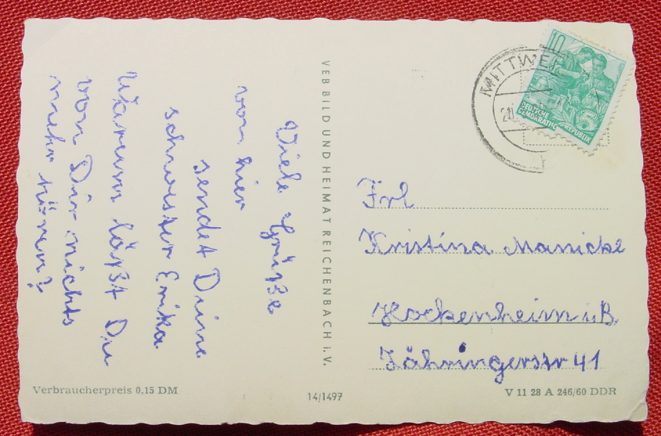 Viele Grüße
von hier
sendet Deine
Schwester Erika
Warum läßt Du
von Dir nichts
mehr hören?
VEB BILD UND HEIMAT REICHENBACH i. V.
MITTWE
10
5
DEUTSCHE
DEMOKRATISCHE REPUBLIK
Frl
Kristina Manicke
Hockenheim i.B.
Zähringerstr 41
Verbraucherpreis 0,15 DM
14/1497
V 11 28 A 246/60 DDR